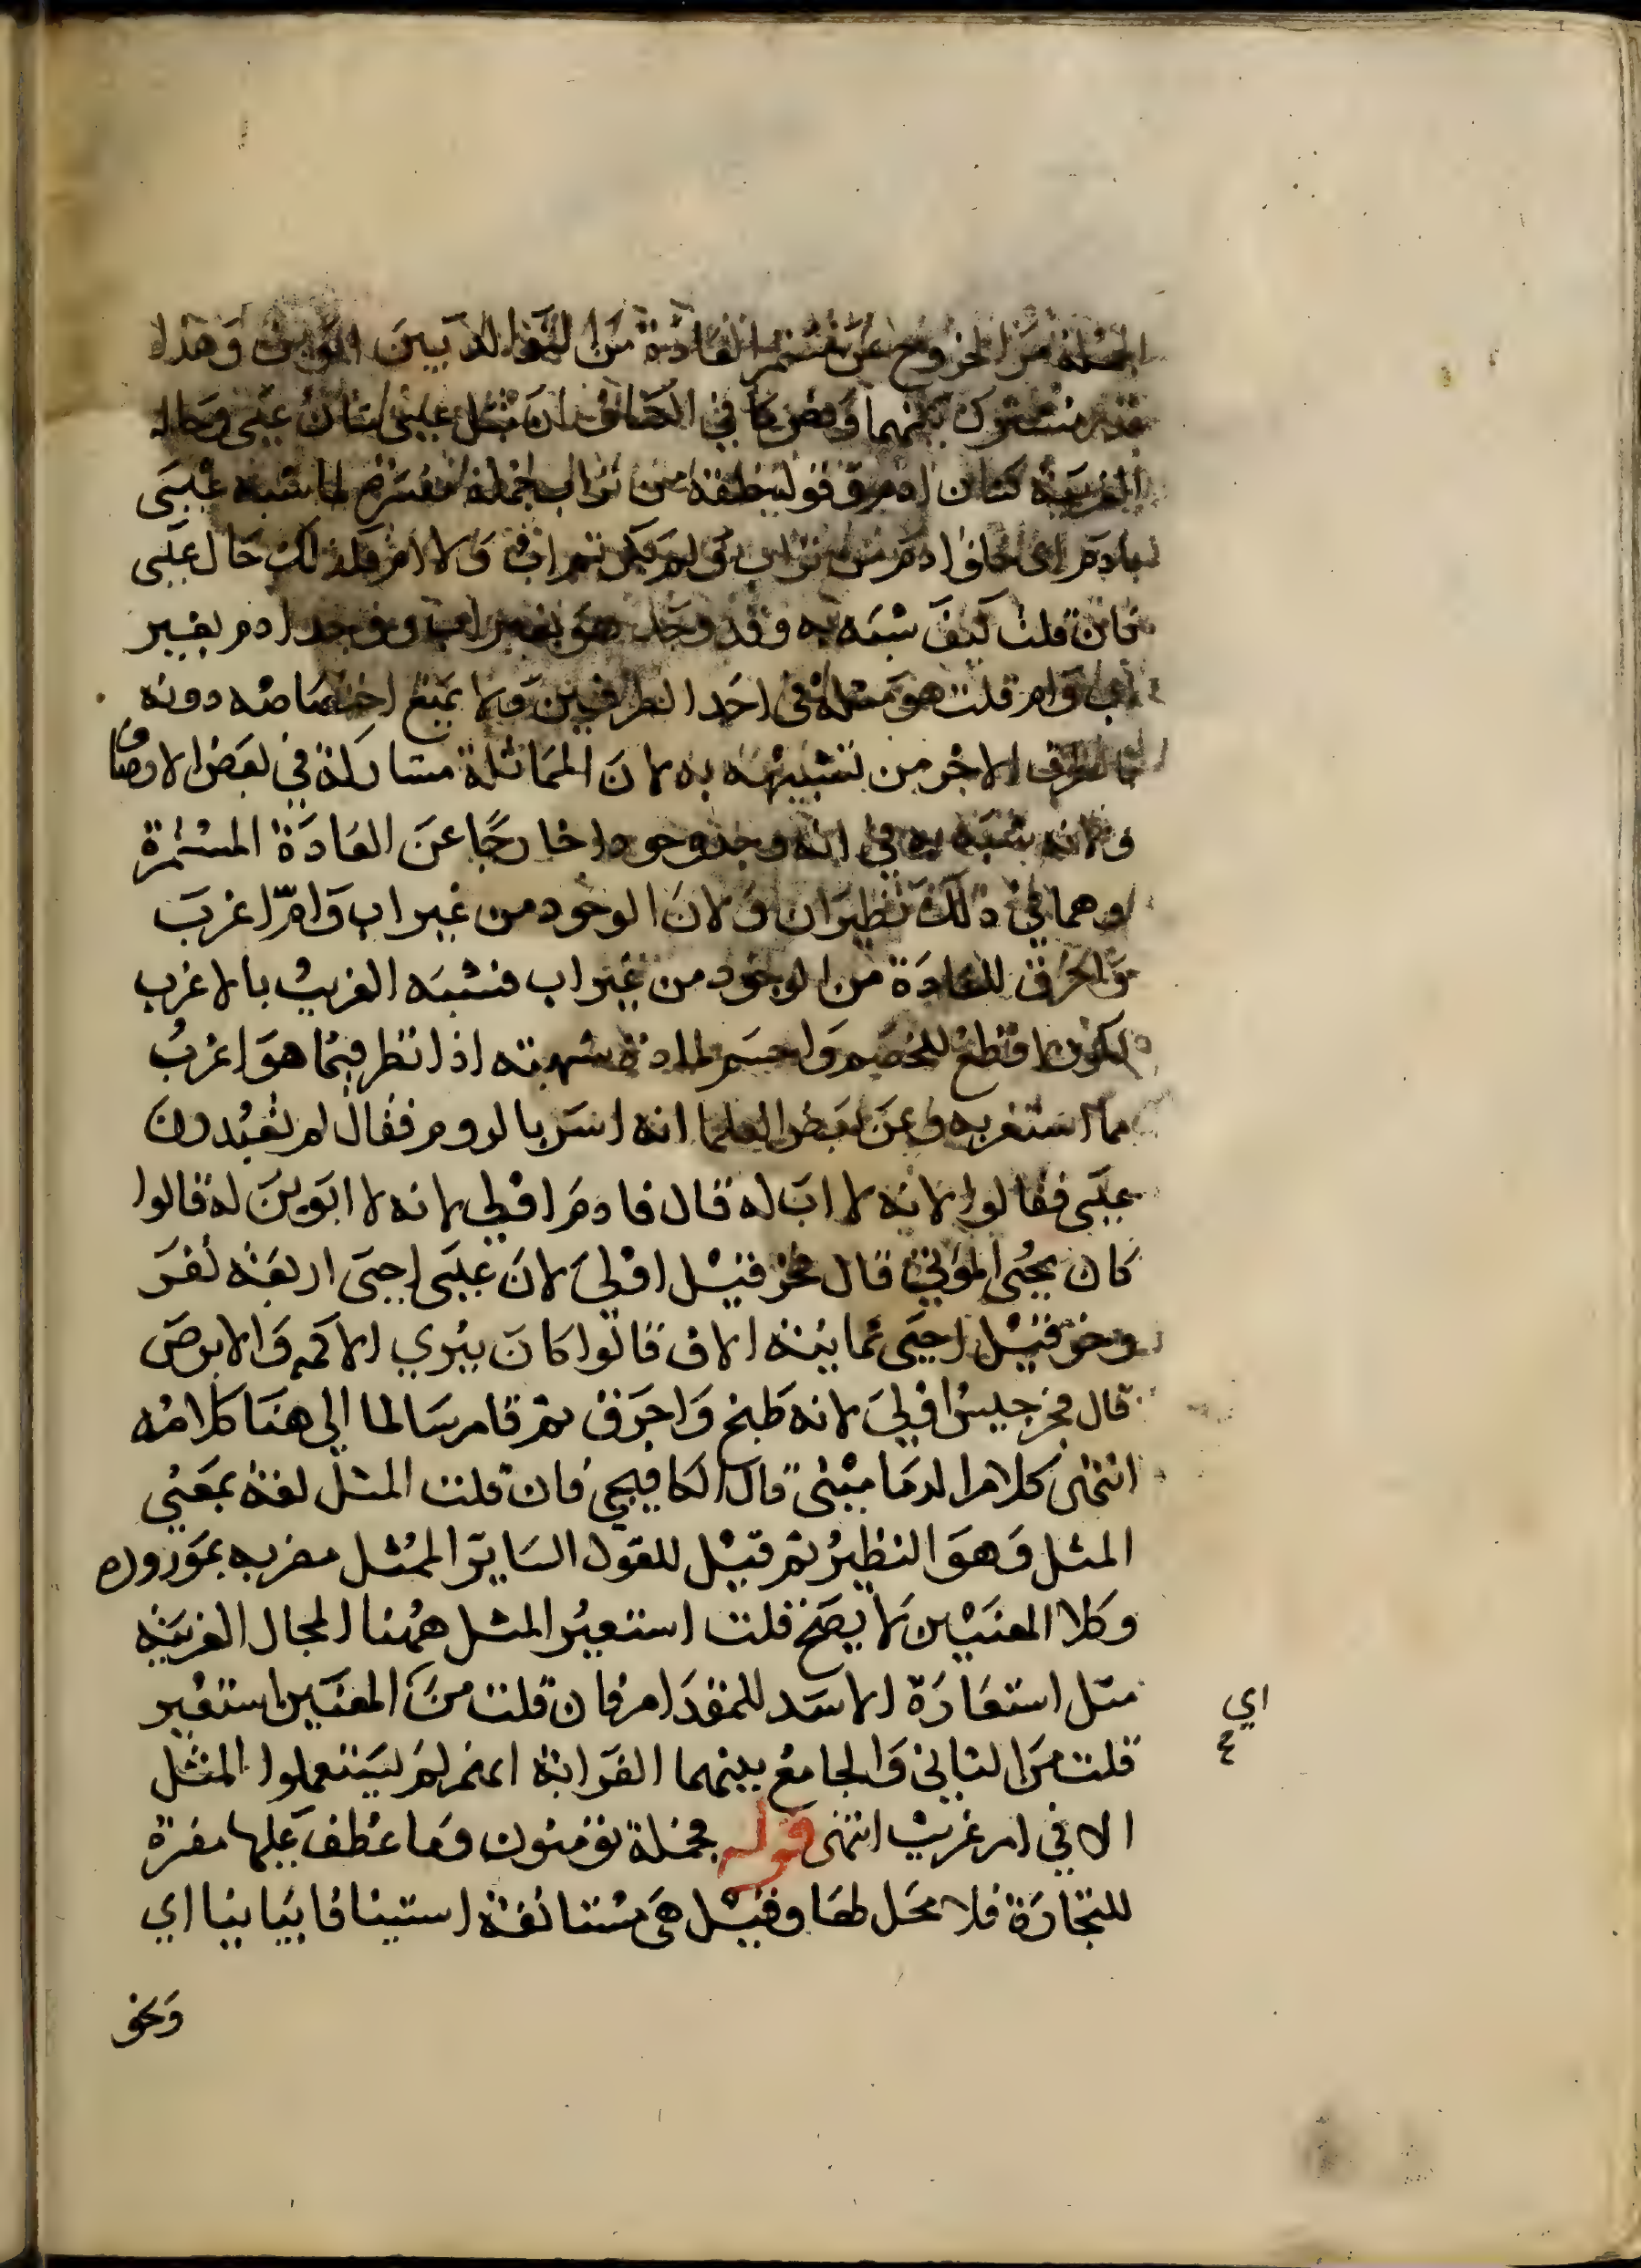 الجملة من الخروج عن مستمر العادة من التوالد بين ابوين وهذا
قدر مشترك بينهما وبعض ما في الكشاف ان مثل عيسى شان عيسى وحاله
الغريبة كشان ادم وقوله خلقه من تراب جملة مفسرة لما شبه عيسى
بادم اى خلق ادم من تراب ولم يكن ثم اب ولا ام وكذلك حال عيسى
فان قلت كيف شبه به وقد وجد هو بغير اب ووجد ادم بغير
اب وام قلت هو مثله في احد الطرفين ولا يمنع اختصاصه دونه
بالطرف الاخر من تشبيهه به لان المماثلة مشاركة في بعض الاوصاف
ولانه شبه به في انه وجد وجودا خارجا عن العادة المستمرة
وهما في ذلك نظيران ولان الوجود من غير اب وام اغرب
واخرق للعادة من الوجود من غير اب فشبه الغريب بالاغرب
ليكون اقطع للخصم واحسم لمادة شبهته اذا نظر فيما هو اغرب
مما استغربه وعن بعض العلما انه اسر بالروم فقال لم تعبدون
عيسى فقالوا لانه لا اب له قال فادم اولى لانه لا ابوين له قالوا
كان يحيى الموتى قال فحزقيل اولى لان عيسى احيى اربعة نفر
وحزقيل احيى ثمانية الاف قالوا كان يبري الاكمه والابرص
قال فجرجيس اولى لانه طبخ واحرق ثم قام سالما الى هنا كلامه
انتهى كلام الدماميني قال الكافيجي فان قلت المثل لغة بمعني
المثل وهو النظير ثم قيل للقول الساير الممثل مضربه بمورده
وكلا المعنيين لا يصح قلت استعير المثل ههنا للحال الغريبة
مثل استعارة الاسد للمقدام فان قلت من اي المعنيين استعير
قلت من الثاني والجامع بينهما الغرابة اي انهم لم يستعملوا المثل
الا في امر غريب انتهى قوله فجملة تؤمنون وما عطف عليها مفسرة
للتجارة فلا محل لها وقيل هي مستانفة استينافا بيانيا اي
اي
ع
ونحو